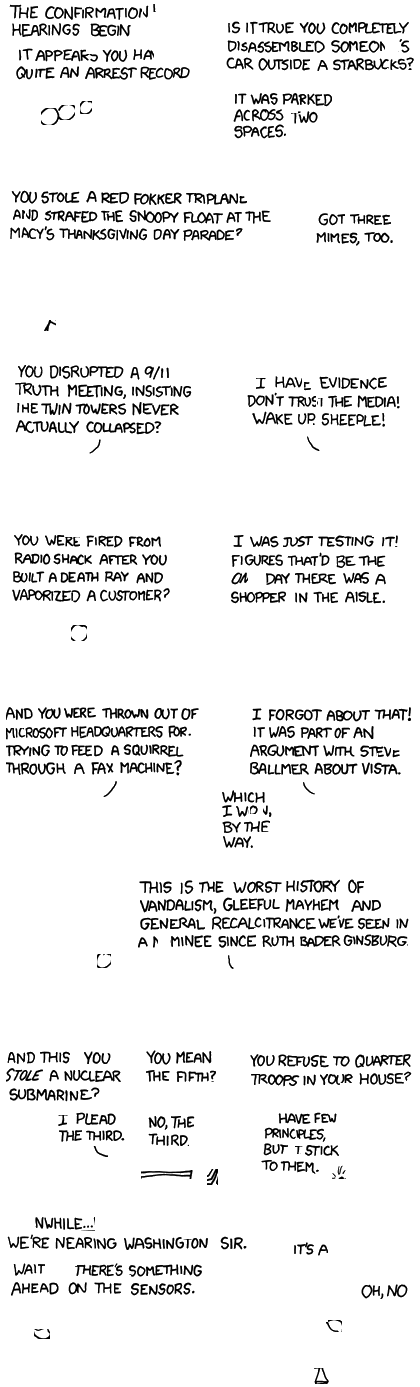 THE CONFIRMATION
HEARINGS BEGIN
IT APPEARS YOU HA
QUITE AN ARREST RECORD
IS IT TRUE YOU COMPLETELY
DISASSEMBLED SOMEON 'S
CAR OUTSIDE A STARBUCKS?
IT WAS PARKED
ACROSS TWO
SPACES.
YOU STOLE A RED FOKKER TRIPLANE
AND STRAFED THE SNOOPY FLOAT AT THE
MACY'S THANKSGIVING DAY PARADE?
GOT THREE
MIMES, TOO.
YOU DISRUPTED A 9/11
TRUTH MEETING, INSISTING
THE TWIN TOWERS NEVER
ACTUALLY COLLAPSED?
I HAVE EVIDENCE
DON'T TRUST THE MEDIA!
WAKE UP, SHEEPLE!
YOU WERE FIRED FROM
RADIO SHACK AFTER YOU
BUILT A DEATH RAY AND
VAPORIZED A CUSTOMER?
I WAS JUST TESTING IT!
FIGURES THAT'D BE THE
ON DAY THERE WAS A
SHOPPER IN THE AISLE.
AND YOU WERE THROWN OUT OF
MICROSOFT HEADQUARTERS FOR
TRYING TO FEED A SQUIRREL
THROUGH A FAX MACHINE?
I FORGOT ABOUT THAT!
IT WAS PART OF AN
ARGUMENT WITH STEVE
BALLMER ABOUT VISTA.
WHICH
I WON,
BY THE
WAY.
THIS IS THE WORST HISTORY OF
VANDALISM, GLEEFUL MAYHEM AND
GENERAL RECALCITRANCE WE'VE SEEN IN
A MINEE SINCE RUTH BADER GINSBURG.
AND THIS YOU
STOLE A NUCLEAR
SUBMARINE?
I PLEAD
THE THIRD.
YOU MEAN
THE FIFTH?
NO, THE
THIRD.
YOU REFUSE TO QUARTER
TROOPS IN YOUR HOUSE?
HAVE FEW
PRINCIPLES,
BUT I STICK
TO THEM.
NWHILE...
WE'RE NEARING WASHINGTON SIR.
WAIT THERE'S SOMETHING
AHEAD ON THE SENSORS.
IT'S A
OH, NO